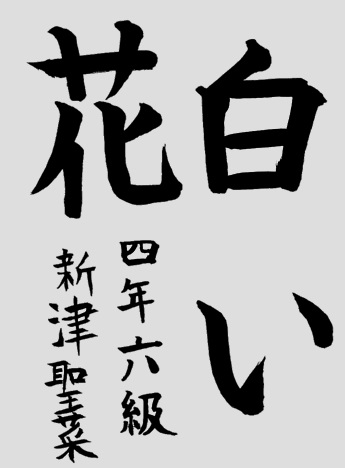 白い
花
四年六級
新津聖菜